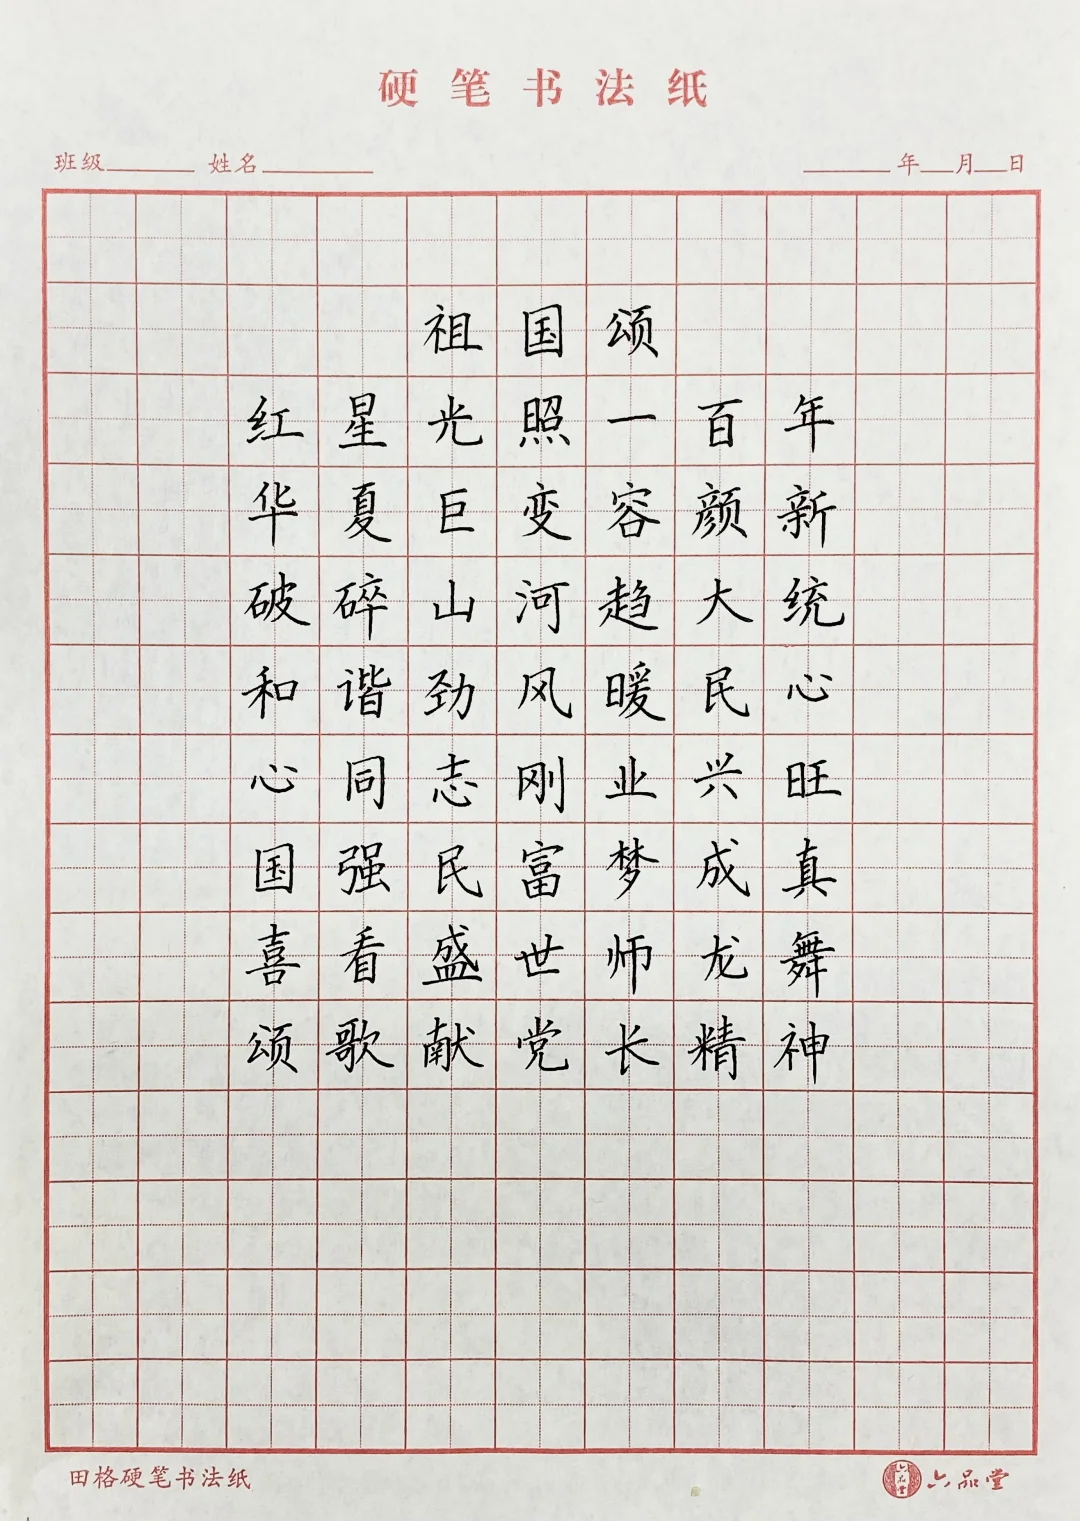 硬笔书法纸
班级 姓名 年 月 日
祖国颂
红星光照一百年
华夏巨变容颜新
破碎山河趋大统
和谐劲风暖民心
心同志刚业兴旺
国强民富梦成真
喜看盛世师龙舞
颂歌献党长精神
田格硬笔书法纸 六品堂 六品堂